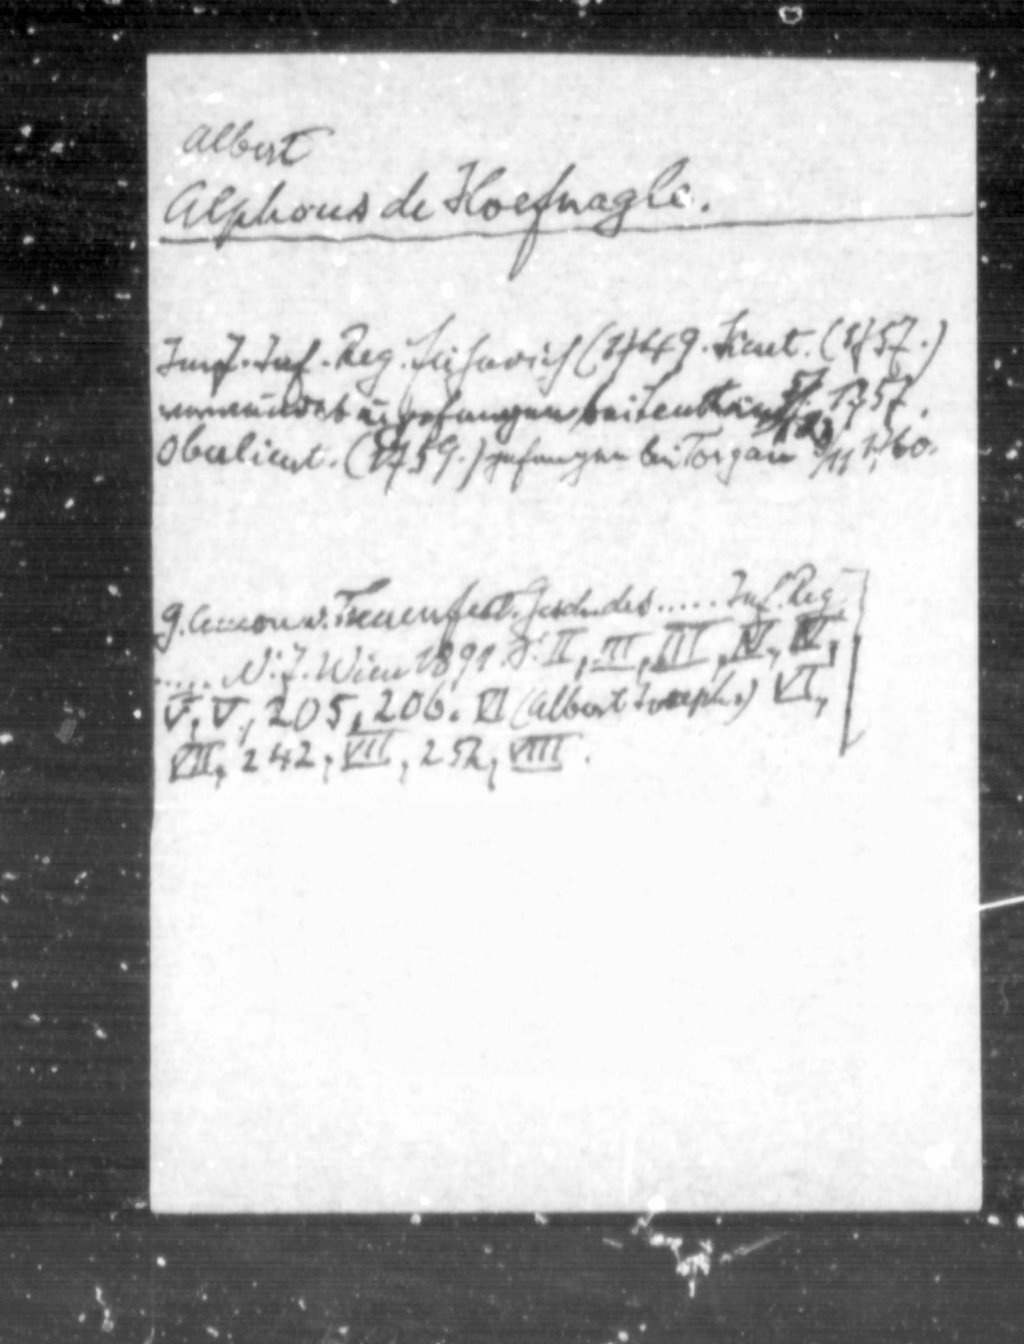 Albert
Alphons de Hoefnagle.
Inf. Reg. (1749. Lieut. (1757.)
verwundet u gefangen bei Leuthen 5/12 1757.
Oberlieut. (1759.) gefangen bei Torgau 3/11 1760.
G. Amon v. Treuenfest. Gesch. des ..... Inf. Reg.
..... Wien 1891. S. II, III, III, IV, IV,
V, V, 205, 206. VI (Albert Joseph.) VI,
VII, 242, VII, 252, VIII.